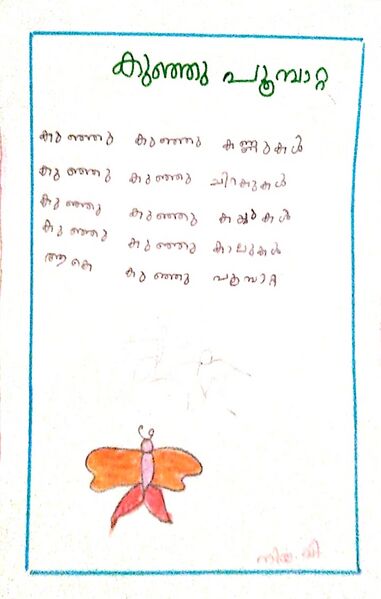 കുഞ്ഞു പൂമ്പാറ്റ
കുഞ്ഞു കുഞ്ഞു കണ്ണുകൾ
കുഞ്ഞു കുഞ്ഞു ചിറകുകൾ
കുഞ്ഞു കുഞ്ഞു കയ്യുകൾ
കുഞ്ഞു കുഞ്ഞു കാലുകൾ
ആകെ കുഞ്ഞു പൂമ്പാറ്റ
നിയ. വി